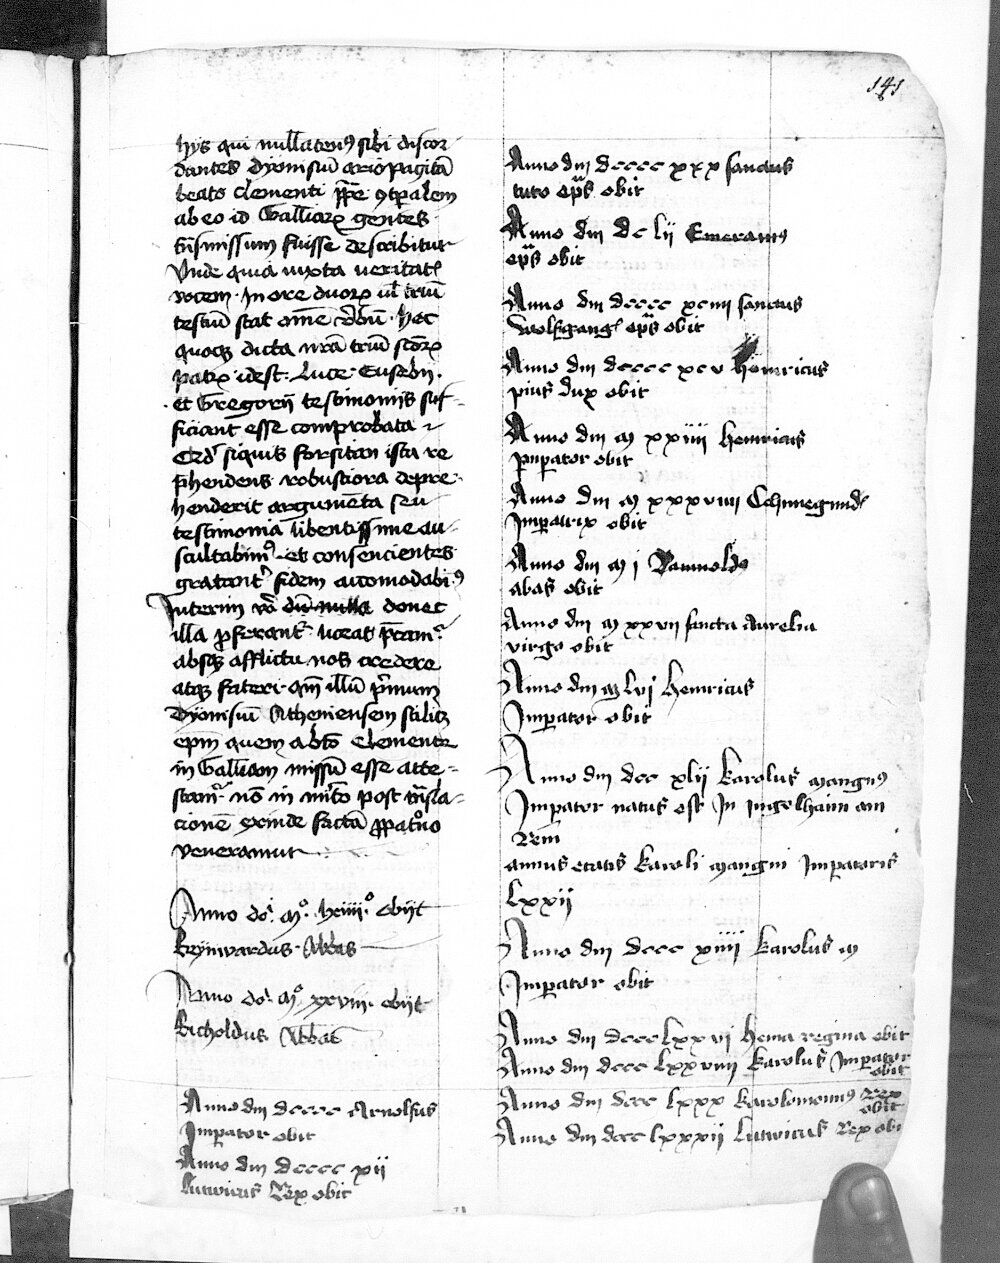 141
hys qui nullaten9 sibi discor
dantes dyonisiu ariopagita
beato Clementi ppe 9tpalem
ab eo id Galliar gentes
tnsmissum fuisse describitur
Vnde quia iuxta veritat
vocem In ore duor ul triu
testiu stat ome vbu hec
quoq dicta nra triu scor
patr idest Luce Eusebii
et Gregorii testimoniis suf
ficiant esse comprobata
Cet siquis forsitan ista re
phendens robustiora depre
henderit argumeta seu
testimonia libentissime au
scultabim9 et consencientes
gratant fidem accomodabi9
Interim vo du nulla donec
illa pferant liceat
absq afflictu nos credere
atq fateri qm illu pmum
dyonisiu Atheniensem scilicz
epm quem a bto Clemente
in Galliam missu esse atte
stam nos in mito post tnsla
cione exinde facta ppatuo
veneramur
Anno do mo lxiiiio obiit
Reynwardus Abbas
Anno do mo xxviii obiit
Richoldus Abbas
Anno dni dcccc Arnolfus
Imperator obiit
Anno dni dcccc xii
Lutwicus Rex obiit
Anno dni dcccc xxx sanctus
tuto eps obiit
Anno dni dc lii Emeram9
eps obiit
Anno dni dcccc xciiii sanctus
Wolfgang eps obiit
Anno dni dcccc xcv Heinricus
pius dux obiit
Anno dni m xxiiii Heinricus
Inperator obiit
Anno dni m xxxviiii Chunegund
Imperatrix obiit
Anno dni m i Ramwold9
abas obiit
Anno dni m xxvii sancta Aurelia
virgo obiit
Anno dni m lvi Heinricus
Imperator obiit
Anno dni dcc xlii karolus mangn9
Imperator natus est In Ingelhaim am
Rein
annus etatis karoli mangni Imperatoris
lxxii
Anno dni dccc xiiii karolus m
Imperator obiit
Anno dni dccc lxxvi Hema regina obiit
Anno dni dccc lxxxviiii karolus Imperator
obiit
Anno dni dccc lxxx karolomann9 Rex
obiit
Anno dni dccc lxxxii Lutwicus Rex obi